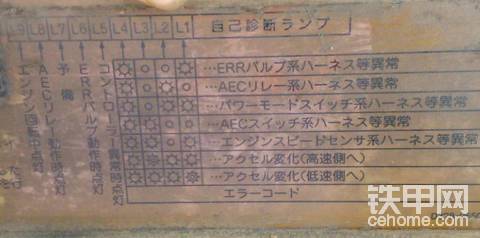 L9 L8 L7 L6 L5 L4 L3 L2 L1 自己診断ランプ
…ERRバルブ系ハーネス等異常
…AECリレー系ハーネス等異常
…パワーモードスイッチ系ハーネス等異常
…AECスイッチ系ハーネス等異常
…エンジンスピードセンサ系ハーネス等異常
…アクセル変化(高速側へ)
…アクセル変化(低速側へ)
エラーコード
コントローラー異常時点灯
ERRバルブ動作時点灯
予備
AECリレー動作時点灯
エンジン回転中点灯
铁甲网
cehome.com